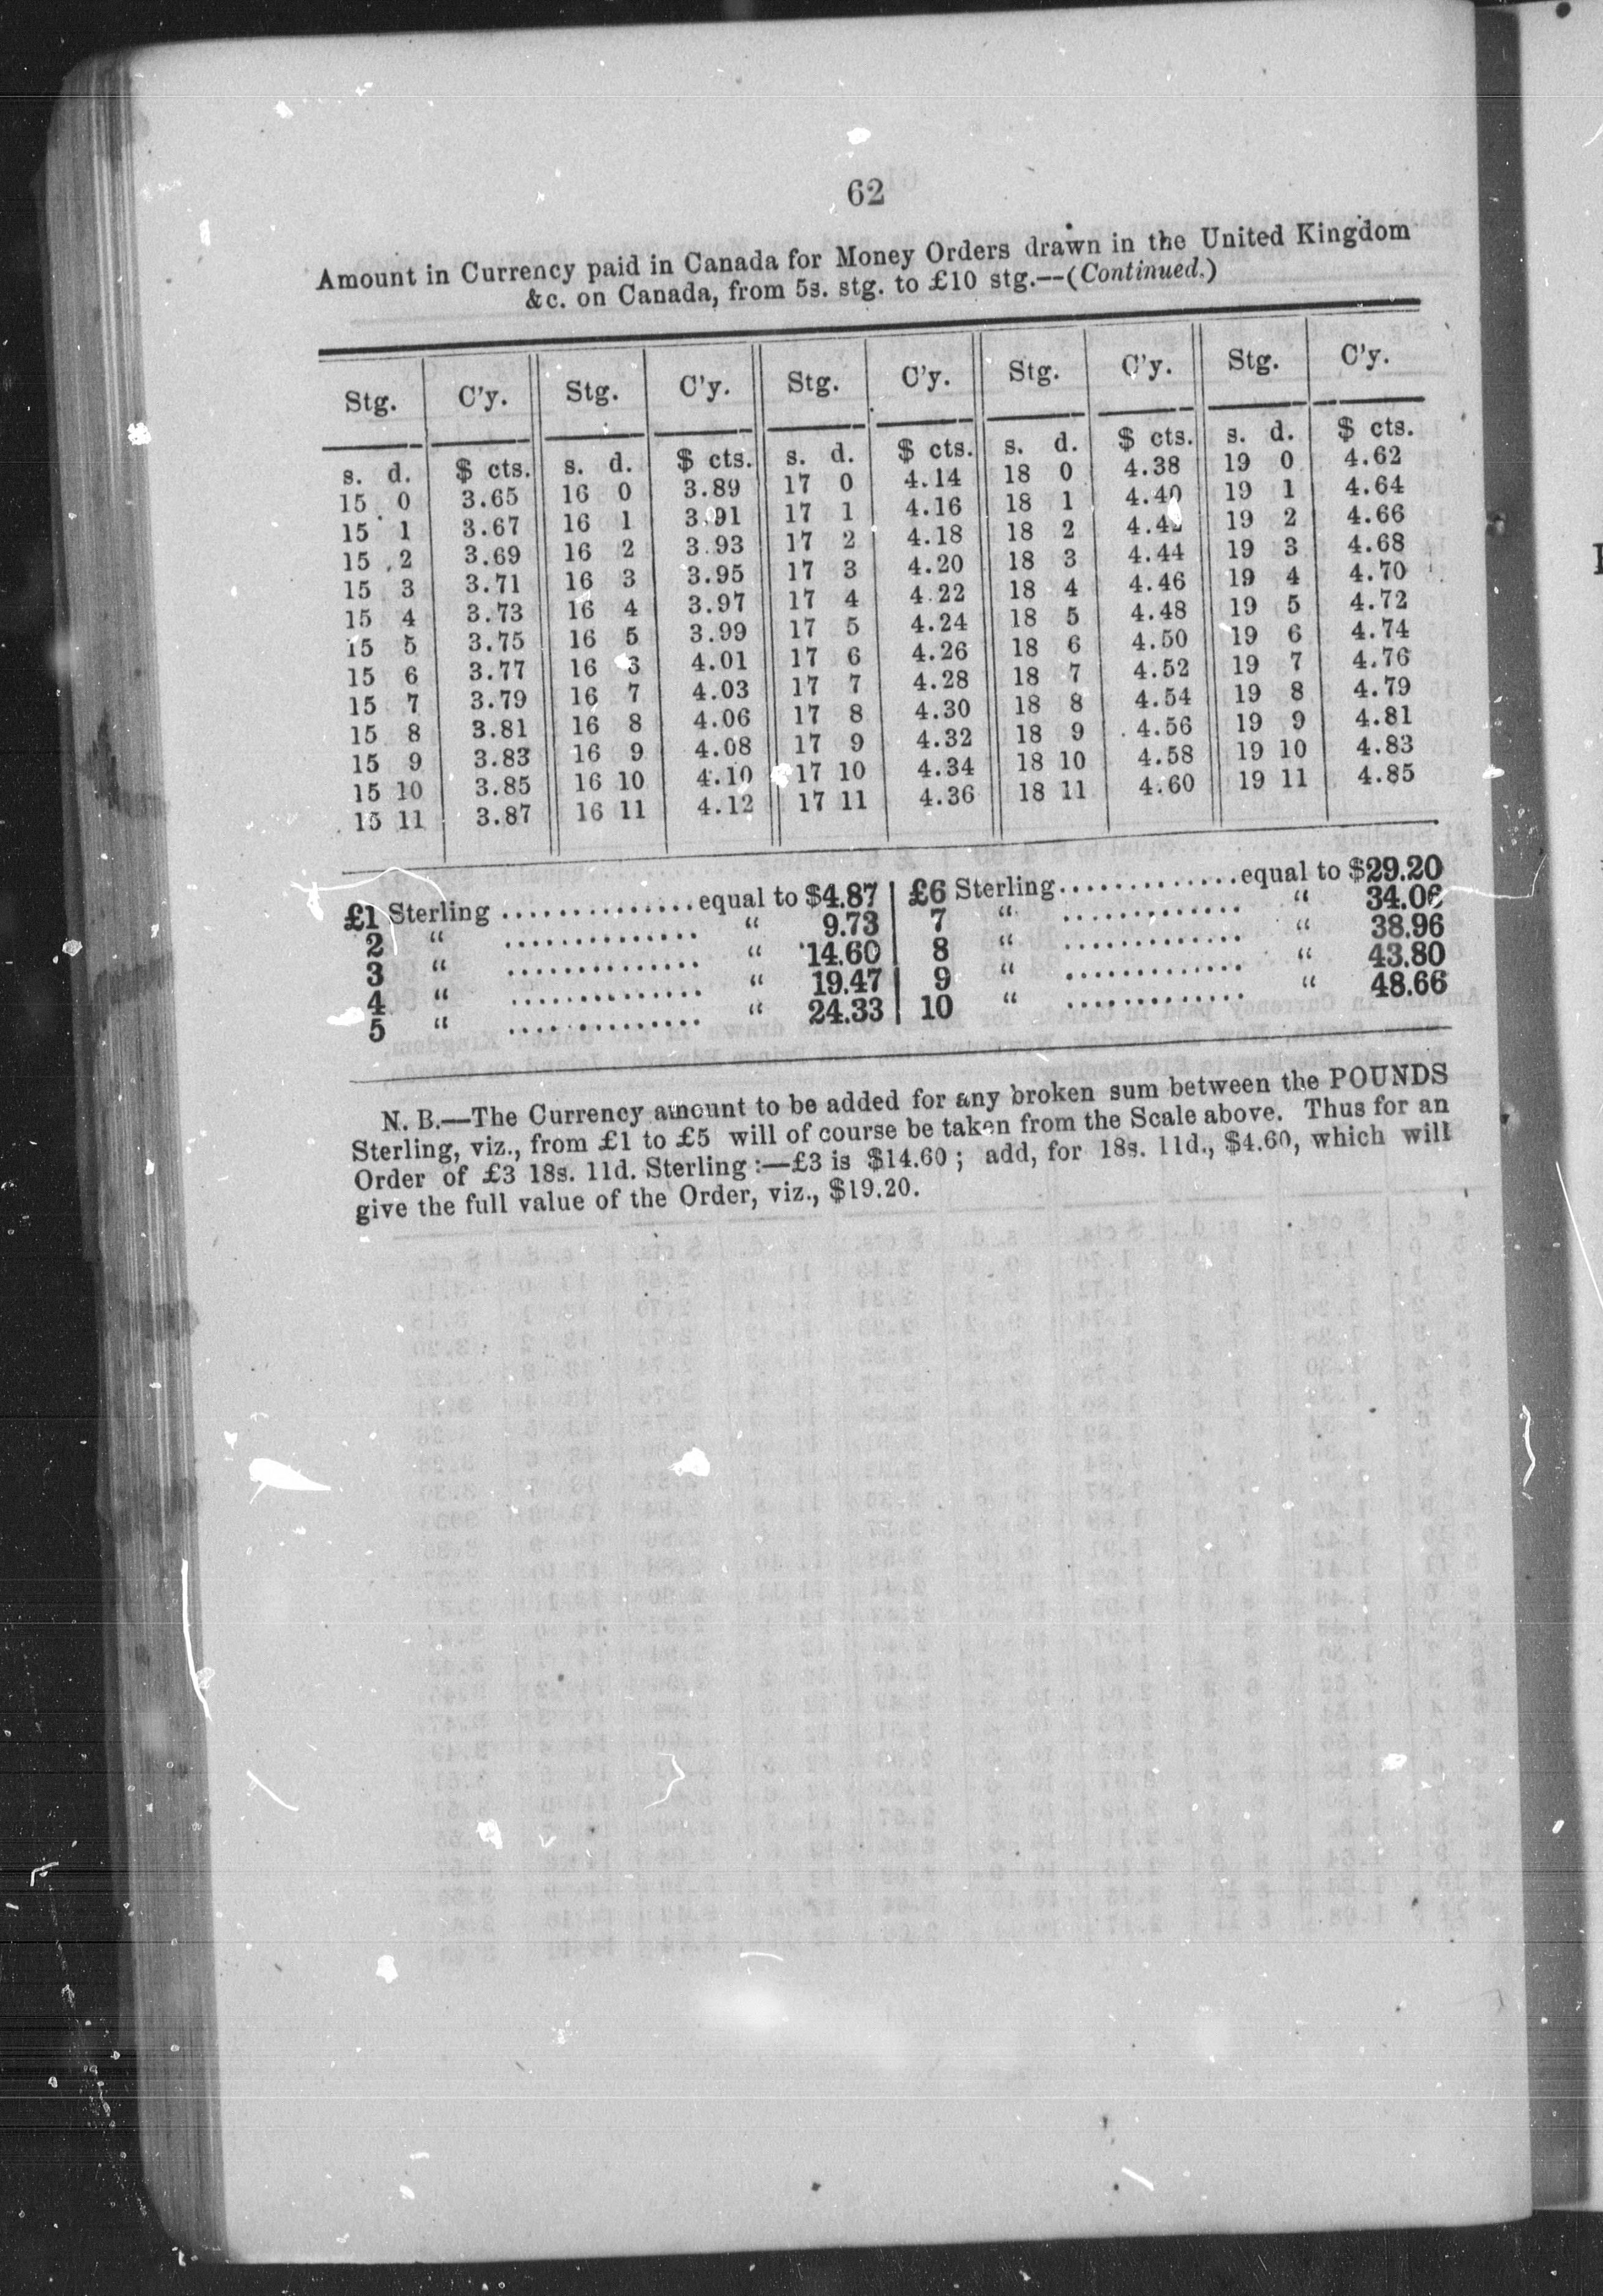 62
Amount in Currency paid in Canada for Money Orders drawn in the United Kingdom
&c. on Canada, from 5s. stg. to £10 stg.—(Continued.)
Stg. C'y. Stg. C'y. Stg. C'y. Stg. C'y. Stg. C'y.
s. d. $ cts. s. d. $ cts. s. d. $ cts. s. d. $ cts. s. d. $ cts.
15 0 3.65 16 0 3.89 17 0 4.14 18 0 4.38 19 0 4.62
15 1 3.67 16 1 3.91 17 1 4.16 18 1 4.40 19 1 4.64
15 2 3.69 16 2 3.93 17 2 4.18 18 2 4.42 19 2 4.66
15 3 3.71 16 3 3.95 17 3 4.20 18 3 4.44 19 3 4.68
15 4 3.73 16 4 3.97 17 4 4.22 18 4 4.46 19 4 4.70
15 5 3.75 16 5 3.99 17 5 4.24 18 5 4.48 19 5 4.72
15 6 3.77 16 3 4.01 17 6 4.26 18 6 4.50 19 6 4.74
15 7 3.79 16 7 4.03 17 7 4.28 18 7 4.52 19 7 4.76
15 8 3.81 16 8 4.06 17 8 4.30 18 8 4.54 19 8 4.79
15 9 3.83 16 9 4.08 17 9 4.32 18 9 4.56 19 9 4.81
15 10 3.85 16 10 4.10 17 10 4.34 18 10 4.58 19 10 4.83
15 11 3.87 16 11 4.12 17 11 4.36 18 11 4.60 19 11 4.85
£1 Sterling .............. equal to $4.87 | £6 Sterling ............. equal to $29.20
2 " .............. " 9.73 | 7 " ............. " 34.06
3 " .............. " 14.60 | 8 " ............. " 38.96
4 " .............. " 19.47 | 9 " ............. " 43.80
5 " .............. " 24.33 | 10 " ............. " 48.66
N. B.—The Currency amount to be added for any broken sum between the POUNDS
Sterling, viz., from £1 to £5 will of course be taken from the Scale above. Thus for an
Order of £3 18s. 11d. Sterling:—£3 is $14.60; add, for 18s. 11d., $4.60, which will
give the full value of the Order, viz., $19.20.